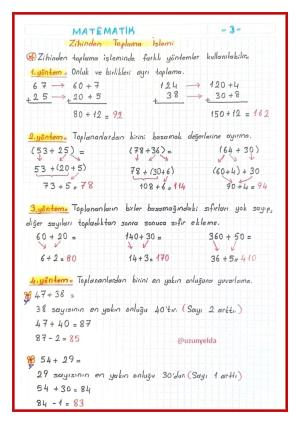 MATEMATİK -3-
Zihinden Toplama İşlemi
Zihinden toplama işleminde farklı yöntemler kullanılabilir.
1.yöntem= Onluk ve birlikleri ayrı toplama.
67 → 60+7 124 → 120+4
+25 → +20+5 +38 → +30+8
80+12 = 92 150+12 = 162
2.yöntem= Toplananlardan birini basamak değerlerine ayırma.
(53+25) = (78+36) = (64+30)
53 +(20+5) 78 + (30+6) (60+4) + 30
73+5 = 78 108+6 = 114 90+4 = 94
3.yöntem= Toplananların birler basamağındaki sıfırları yok sayıp,
diğer sayıları topladıktan sonra sonuca sıfır ekleme.
60+20 = 140+30 = 360+50 =
6+2 = 80 14+3 = 170 36+5 = 410
4.yöntem= Toplananlardan birini en yakın onluğa yuvarlama.
47+38 =
38 sayısının en yakın onluğu 40'tır. (Sayı 2 arttı.)
47+40 = 87
87-2 = 85
@uzunyelda
54+29 =
29 sayısının en yakın onluğu 30'dur. (Sayı 1 arttı)
54+30 = 84
84-1 = 83